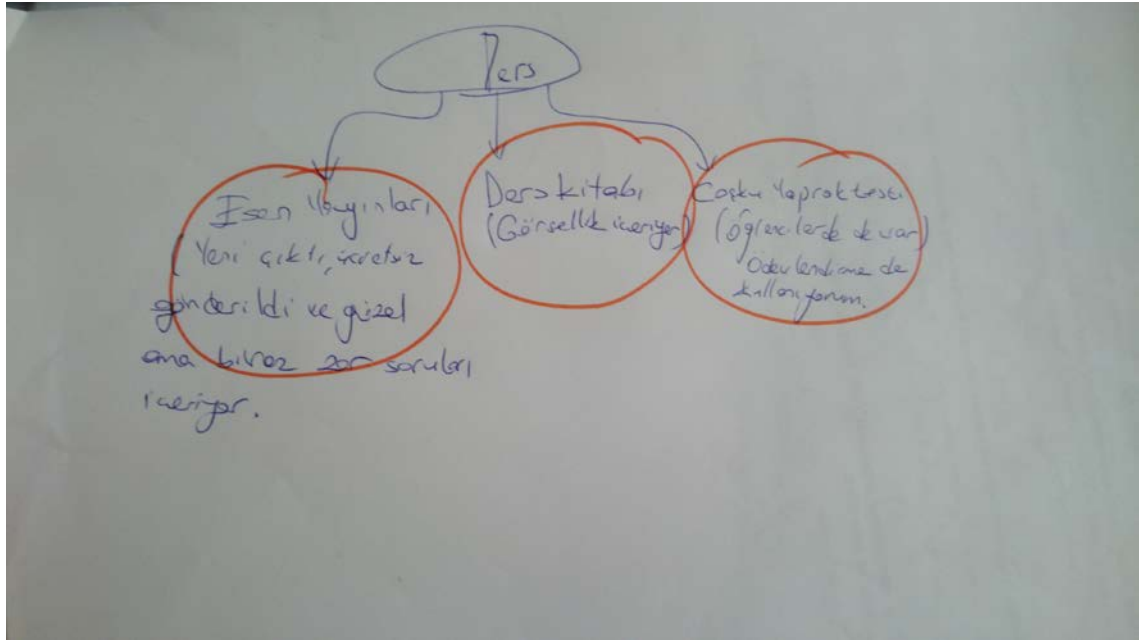 Ders
Esen Yayınları
(Yeni çıktı, ücretsiz
gönderildi ve güzel
ama biraz zor soruları
içeriyor.
Ders kitabı
(Görsellik içeriyor)
Coşku Yaprak testi
(Öğrencilerde de var)
Ödevlendirme de
kullanıyorum.